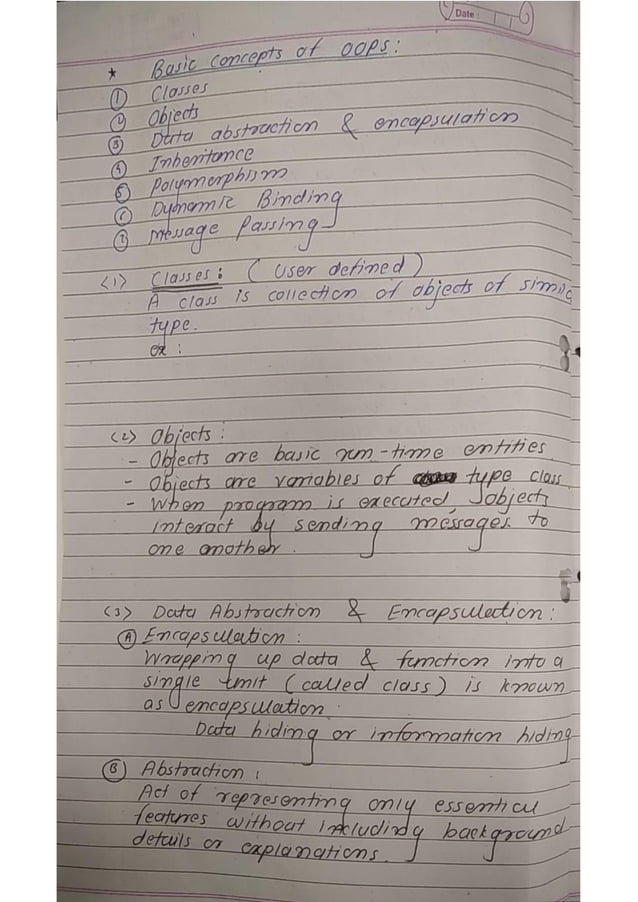 Date :
* Basic concepts of OOPS :
① Classes
② Objects
③ Data abstraction & encapsulation
④ Inheritance
⑤ Polymorphism
⑥ Dynamic Binding
⑦ Message Passing
<1> Classes : ( User defined )
A class is collection of objects of simila
type.
ex :
<2> Objects :
- Objects are basic run-time entities
- Objects are variables of type class
- When program is executed, objects
interact by sending messages to
one another .
<3> Data Abstraction & Encapsulation :
Ⓐ Encapsulation :
Wrapping up data & function into a
single unit ( called class ) is known
as encapsulation .
Data hiding or information hiding
Ⓑ Abstraction :
Act of representing only essential
features without including background
details or explanations.